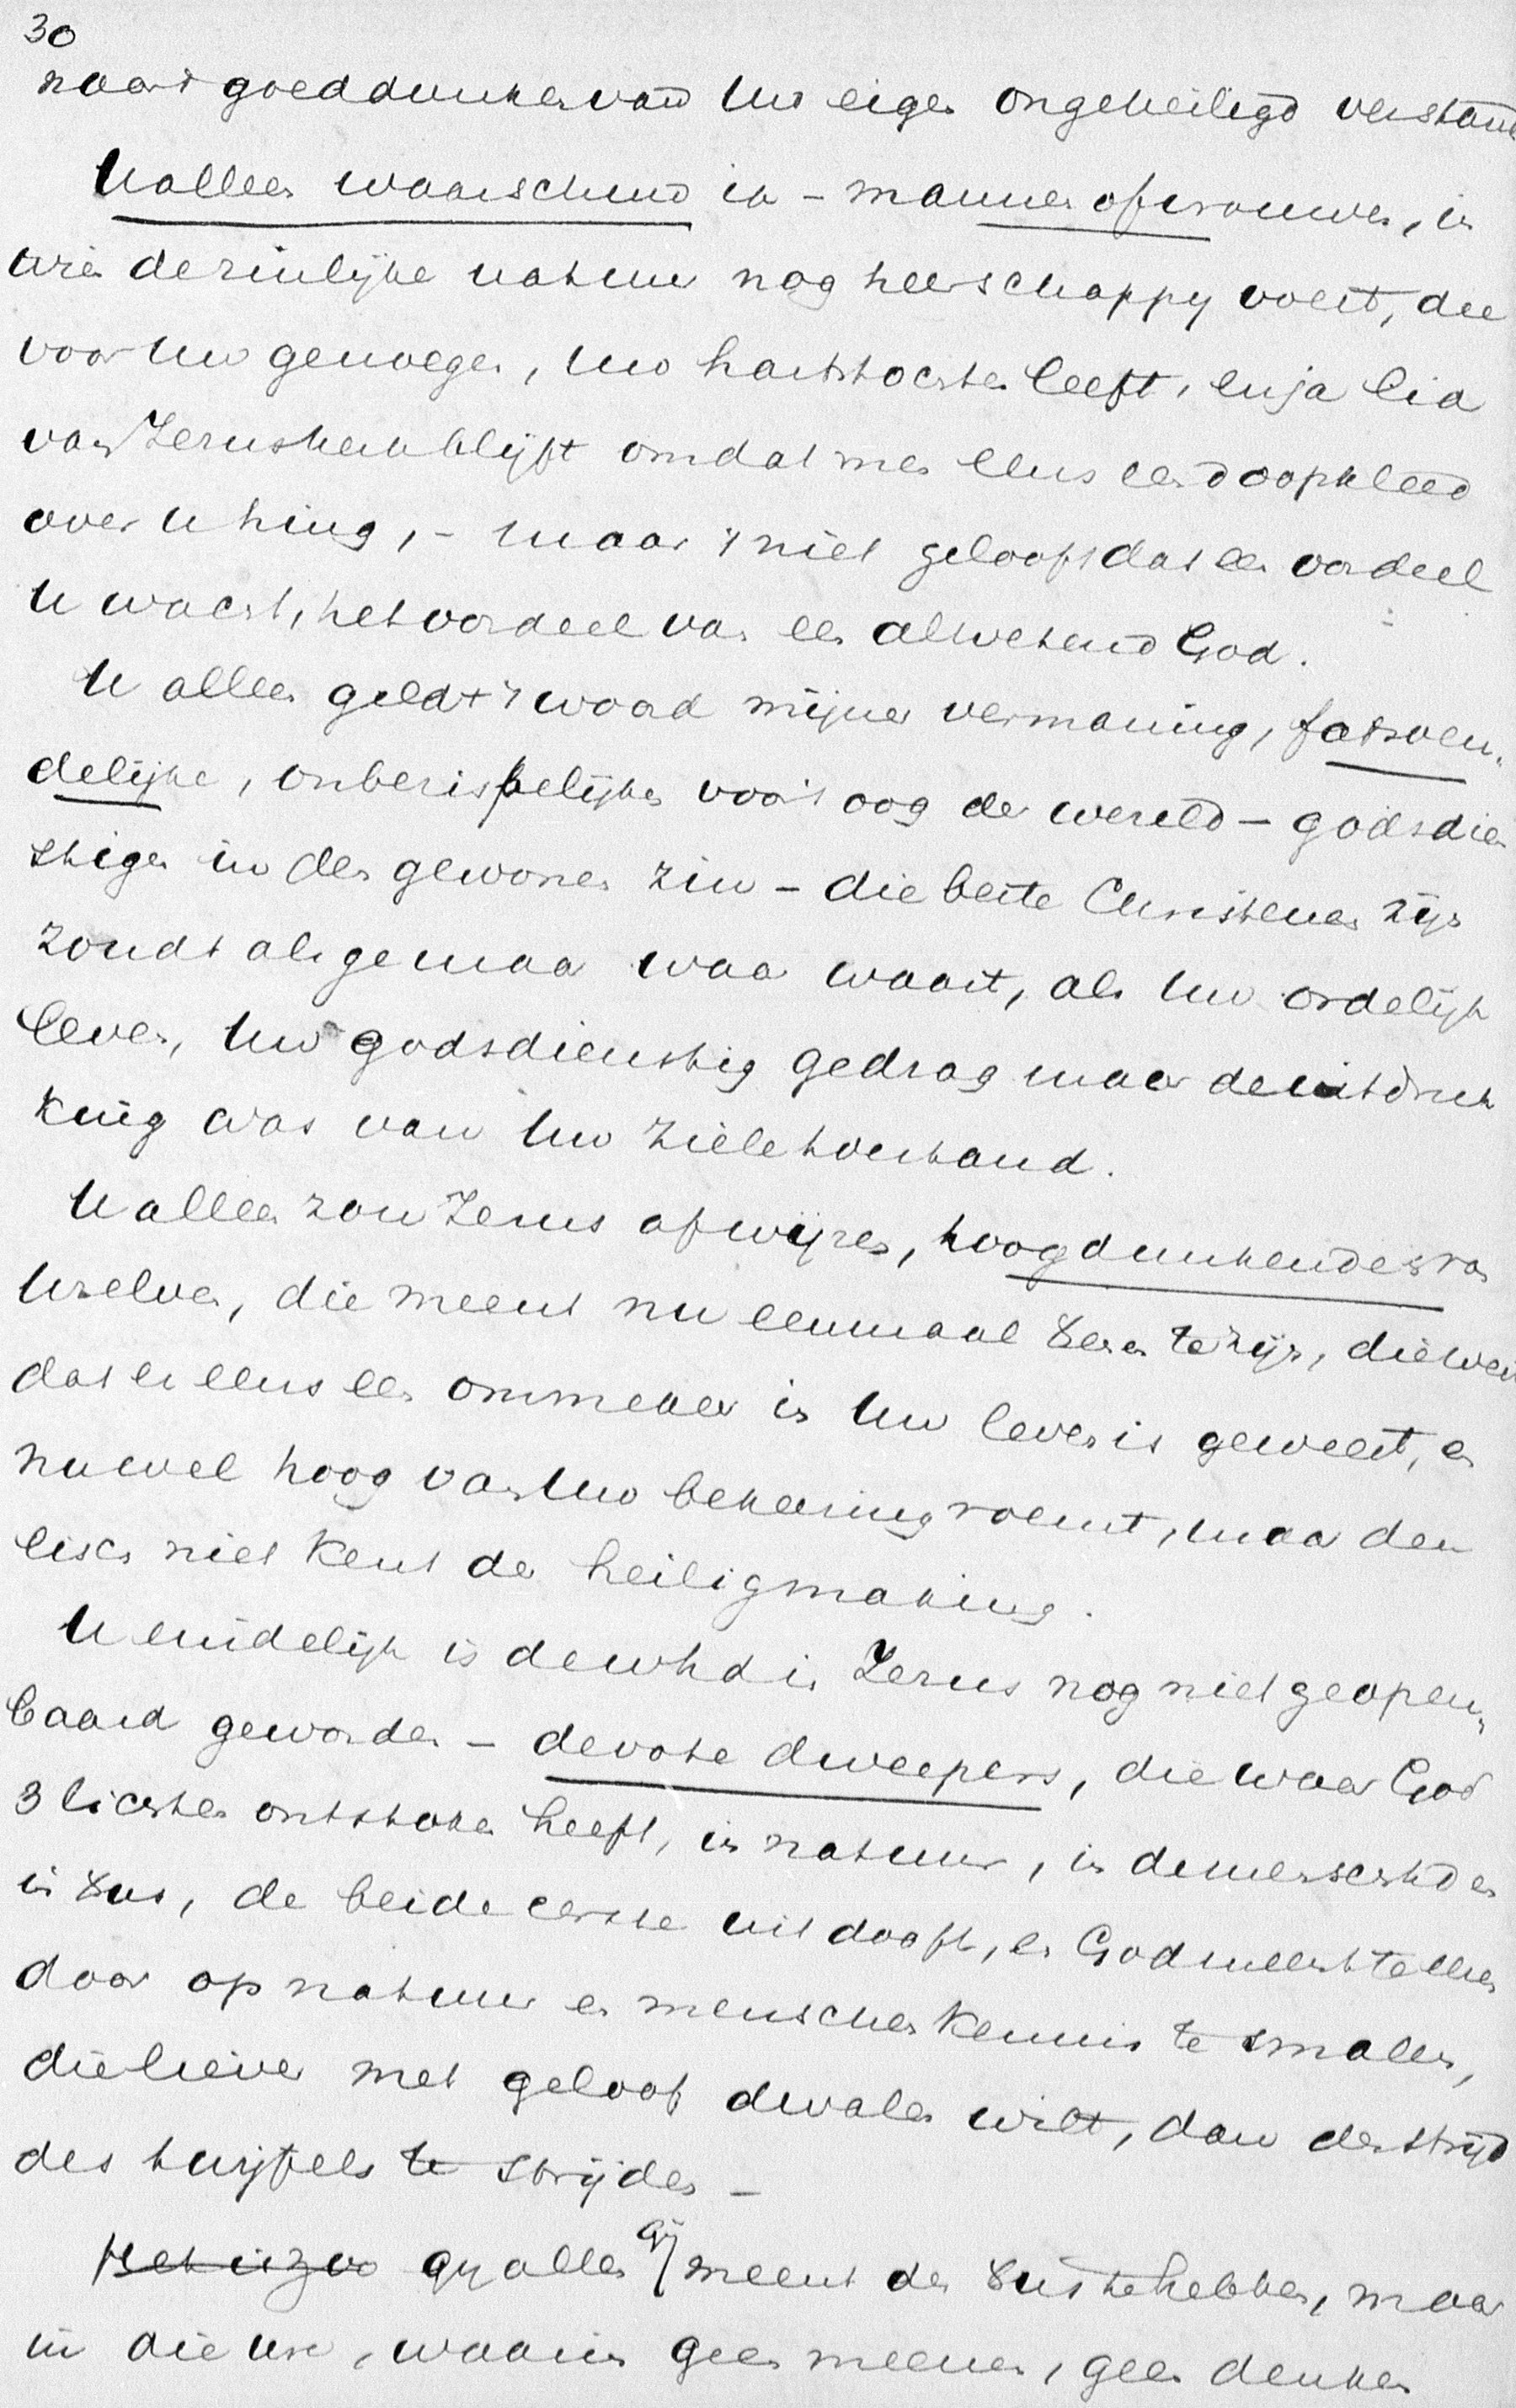 30
naar goeddunken van Uw eigen ongeheiligd verstand
U allen waarschuw ik - mannen of vrouwen, in
wie de zinlijke natuur nog heerschappy voert, die
voor Uw genoegen, Uw hartstochten leeft, en ja lid
van Jezus kerk blijft omdat men eens een doopkleed
over U hing, - maar 't niet gelooft dat een oordeel
U wacht, het oordeel van een alwetend God.
U allen geldt 't woord mijner vermaning, fatsoen-
delijke, onberispelijken voor 't oog der wereld - godsdien
stigen in den gewonen zin - die beste Christenen zijn
zoudt als ge maar waar waart, als Uw ordelijk
leven, Uw godsdienstig gedrag maar de uitdruk
king was van Uw zielstoestand.
U allen zou Jezus afwijzen, hoogdunkenden van
Uzelven, die meent nu eenmaal te zijn, diewijl
dat er eens een ommekeer in Uw leven is geweest, en
nu wel hoog van Uw bekeering roemt, maar den
eisch niet kent der heiligmaking.
U eindelijk is de whd in Jezus nog niet geopen-
baard geworden - devote dweepers, die waar God
3 lichten ontstoken heeft, in natuur, in de menschhd en
in , de beide eerste uitdooft, en God meent te eeren
door op natuur en menschenkennis te smalen,
die liever met geloof dwalen wilt, dan den strijd
des twijfels te strijden -
Het is zoo gy allen gij meent den te hebben, maar
in die ure, waarin geen meenen, geen denken